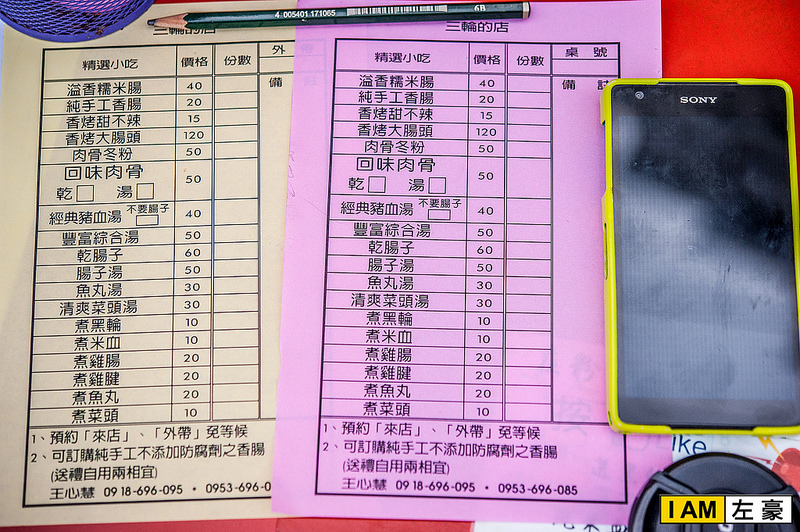 4 005401 171065 6B
三輪的店
精選小吃 價格 份數 外
備
溢香糯米腸 40
純手工香腸 20
香烤甜不辣 15
香烤大腸頭 120
肉骨冬粉 50
回味肉骨
乾 湯 50
經典豬血湯 不要腸子 40
豐富綜合湯 50
乾腸子 60
腸子湯 50
魚丸湯 30
清爽菜頭湯 30
煮黑輪 10
煮米血 10
煮雞腸 20
煮雞腱 20
煮魚丸 20
煮菜頭 10
1、預約「來店」、「外帶」免等候
2、可訂購純手工不添加防腐劑之香腸
(送禮自用兩相宜)
王心慧 0918-696-095 · 0953-696-0
三輪的店
精選小吃 價格 份數 桌號
備註
溢香糯米腸 40
純手工香腸 20
香烤甜不辣 15
香烤大腸頭 120
肉骨冬粉 50
回味肉骨
乾 湯 50
經典豬血湯 不要腸子 40
豐富綜合湯 50
乾腸子 60
腸子湯 50
魚丸湯 30
清爽菜頭湯 30
煮黑輪 10
煮米血 10
煮雞腸 20
煮雞腱 20
煮魚丸 20
煮菜頭 10
1、預約「來店」、「外帶」免等候
2、可訂購純手工不添加防腐劑之香腸
(送禮自用兩相宜)
王心慧 0918-696-095 · 0953-696-085
SONY
ike
I AM 左豪